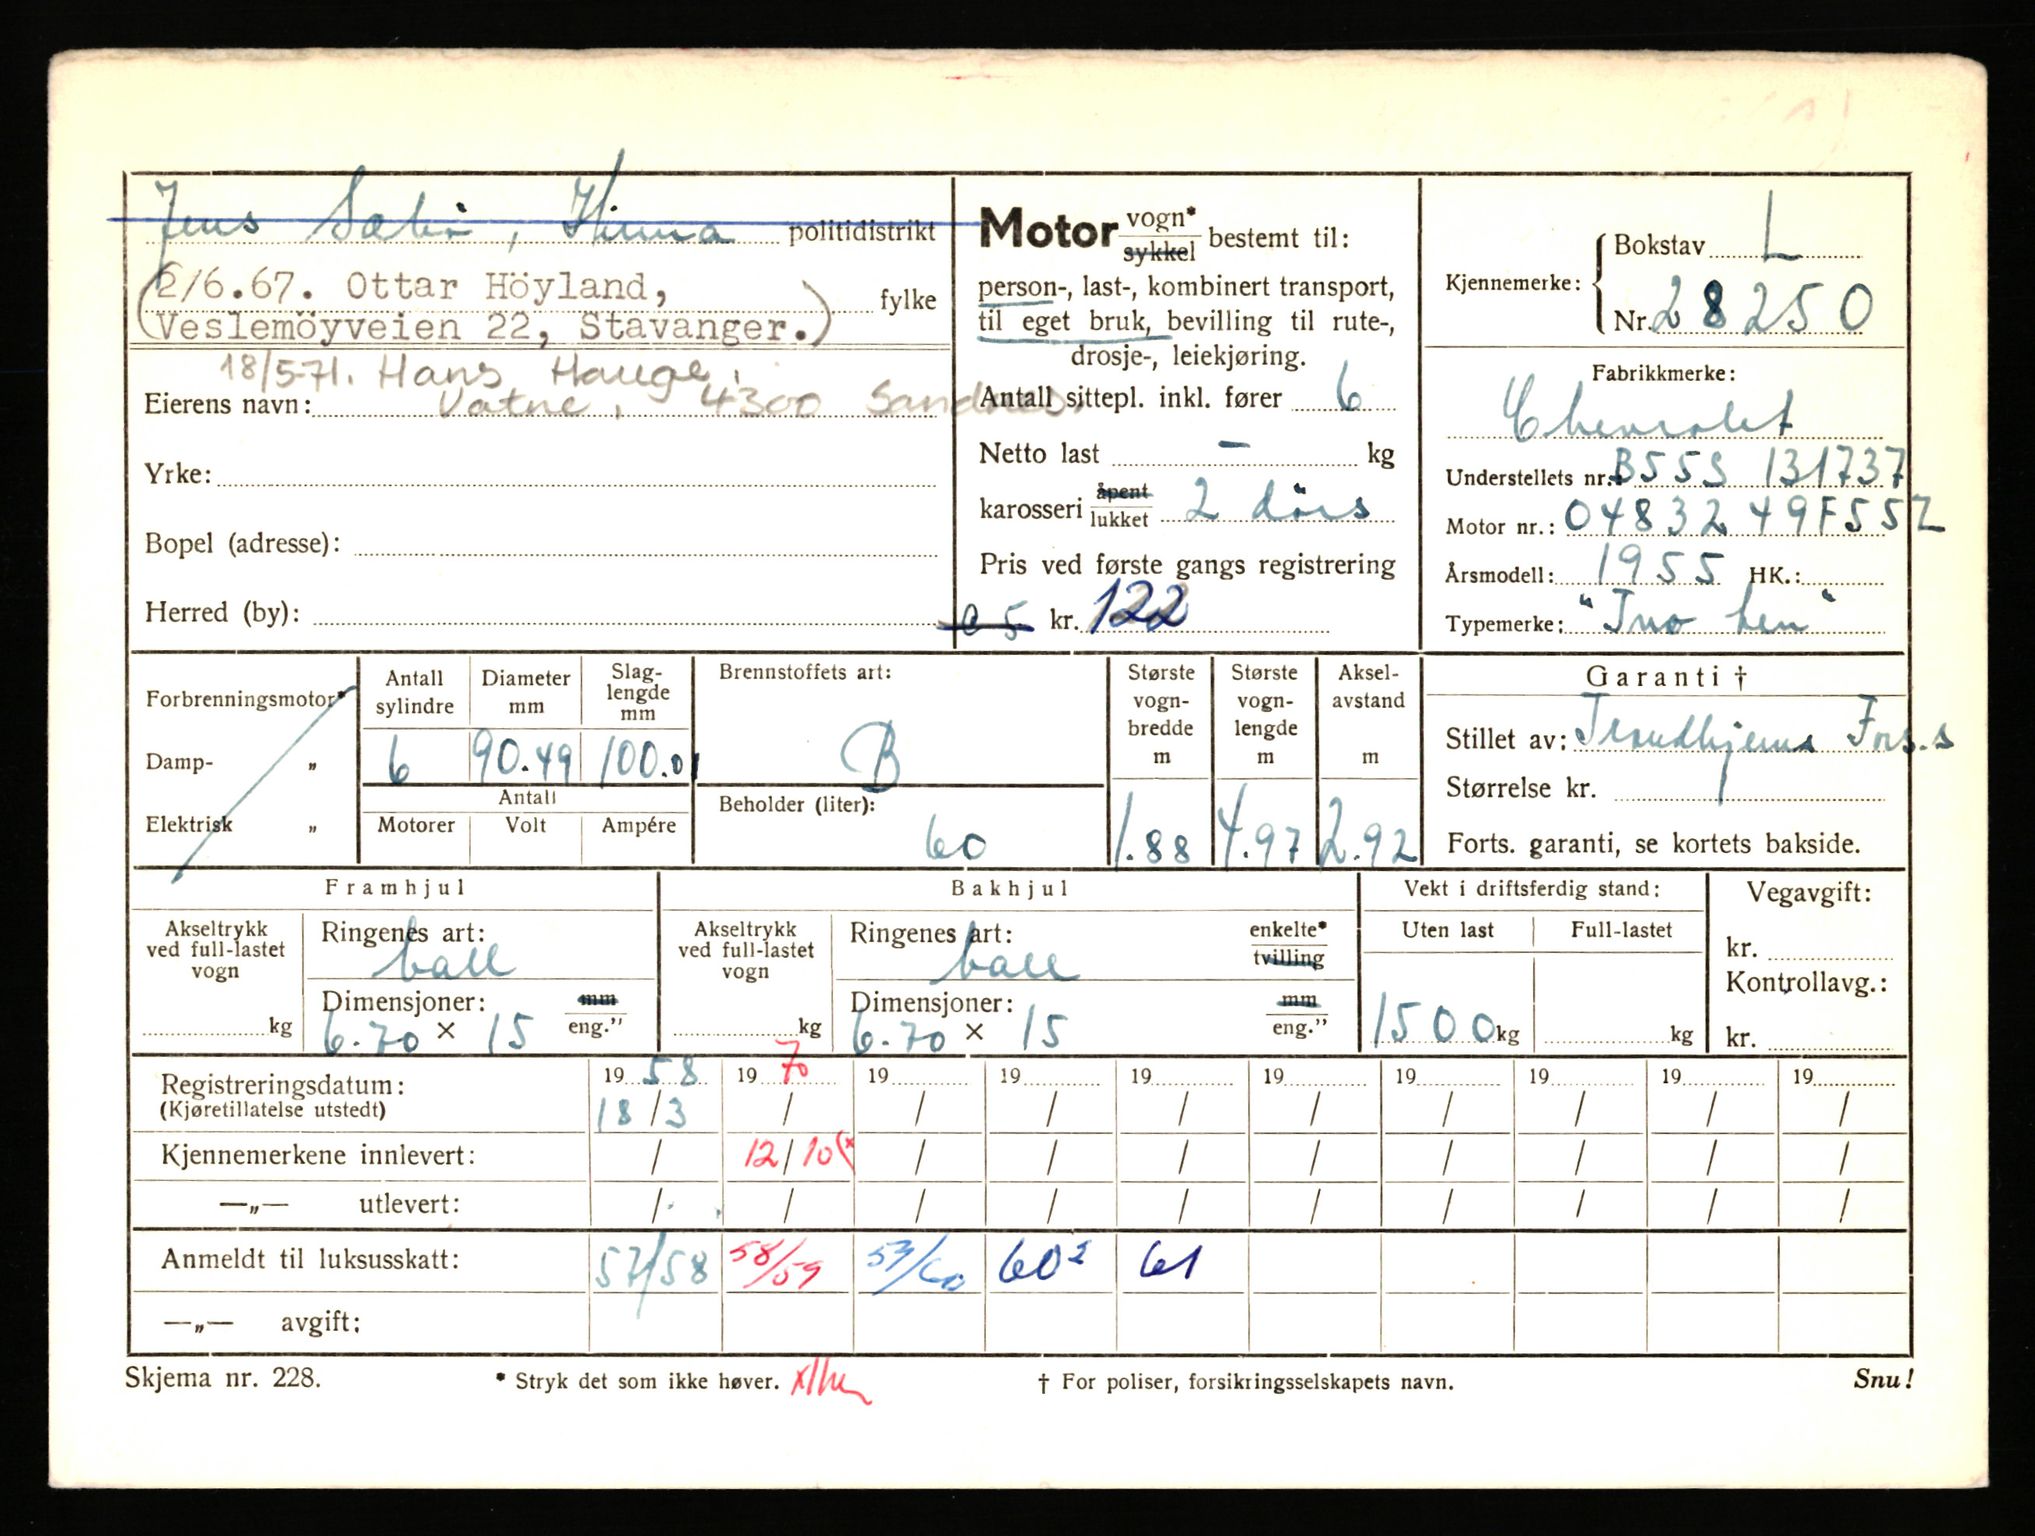 Jens Sæbö, Hinna politidistrikt
(2/6.67. Ottar Höyland, fylke
(Veslemöyveien 22, Stavanger.)
18/5-71. Hans Hauge,
Eierens navn: Vatne, 4300 Sandnes.
Yrke:
Bopel (adresse):
Herred (by):
Motor vogn* sykkel bestemt til:
person-, last-, kombinert transport,
til eget bruk, bevilling til rute-,
drosje-, leiekjøring.
Antall sittepl. inkl. fører 6
Netto last - kg
karosseri åpent lukket 2 dörs
Pris ved første gangs registrering
kr. 122
Kjennemerke: Bokstav L
Nr. 28250
Fabrikkmerke:
Chevrolet
Understellets nr.: B55S 131737
Motor nr.: 0483249F55Z
Årsmodell: 1955 HK.:
Typemerke: "Two ten"
Forbrenningsmotor*
Damp- „
Elektrisk „
Antall sylindre 6
Diameter mm 90.49
Slag-lengde mm 100.01
Antall
Motorer Volt Ampére
Brennstoffets art:
B
Beholder (liter):
60
Største vogn-bredde m 1.88
Største vogn-lengde m 4.97
Aksel-avstand m 2.92
Garanti †
Stillet av: Trondhjems Fors.s
Størrelse kr.
Forts. garanti, se kortets bakside.
Framhjul
Akseltrykk ved full-lastet vogn kg
Ringenes art: ball
Dimensjoner: mm eng.”
6.70 × 15
Bakhjul
Akseltrykk ved full-lastet vogn kg
Ringenes art: ball enkelte* tvilling
Dimensjoner: mm eng.”
6.70 × 15
Vekt i driftsferdig stand:
Uten last Full-lastet
1500 kg kg
Vegavgift:
kr.
Kontrollavg.:
kr.
Registreringsdatum: 1958 1970 19 19 19 19 19 19 19 19
(Kjøretillatelse utstedt) 18/3 / / / / / / / / /
Kjennemerkene innlevert: / 12/10(* / / / / / / / /
—„— utlevert: / / / / / / / / / /
Anmeldt til luksusskatt: 57/58 58/59 59/60 60² 61
—„— avgift:
Skjema nr. 228. * Stryk det som ikke høver. † For poliser, forsikringsselskapets navn. Snu!